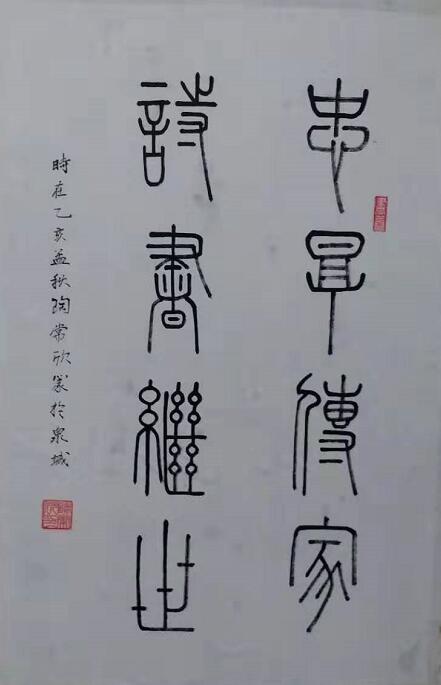 忠厚傳家
詩書繼世
時在乙亥孟秋陶常欣篆於泉城